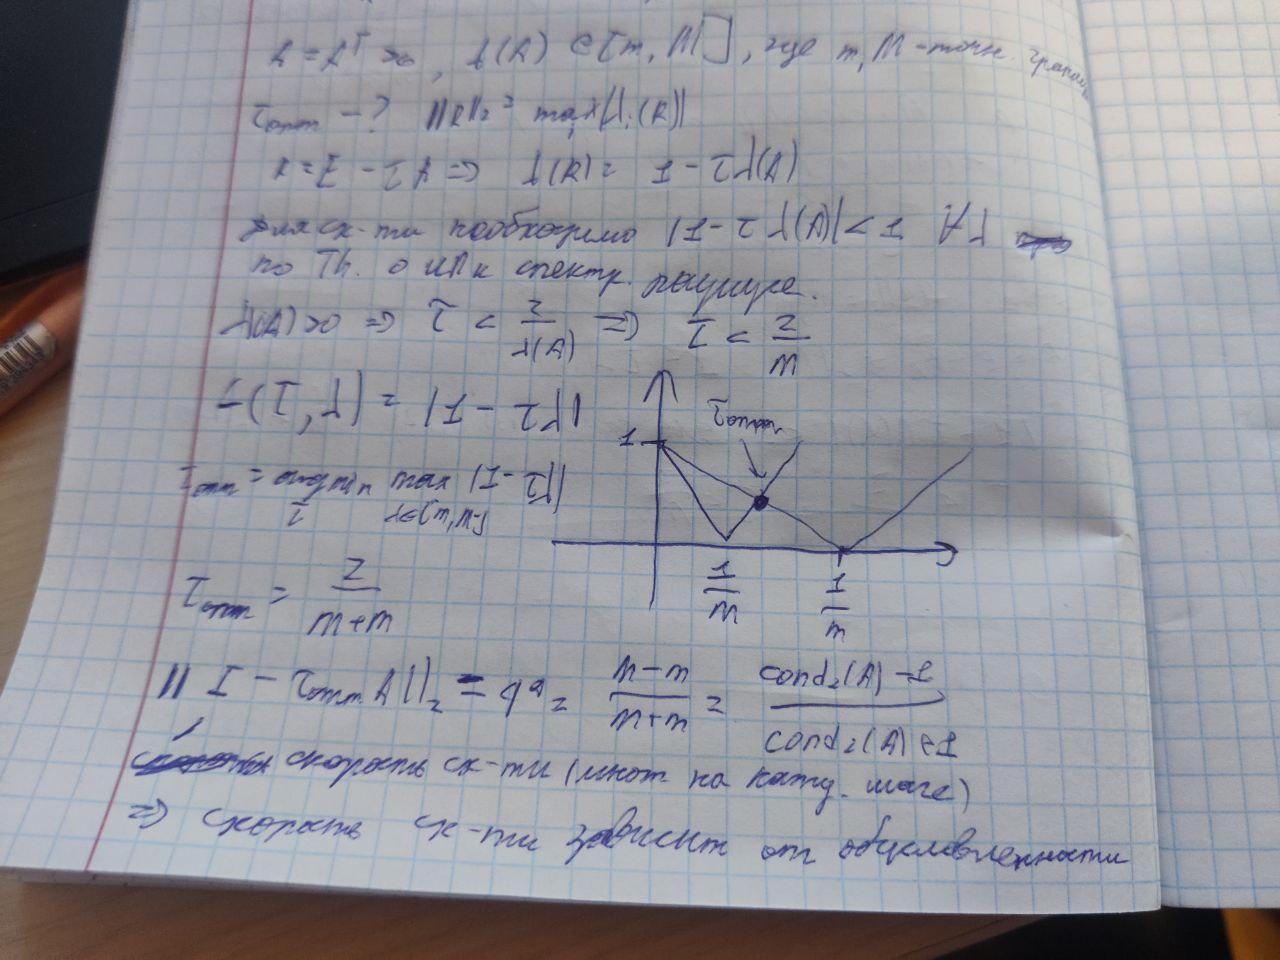 A = Aᵀ > 0, λ(A) ∈ [m, M], где m, M - точн. границы
τопт - ? ||R||₂ = max|λᵢ(R)|
R = E - τA => λ(R) = 1 - τλ(A)
Для сх-ти необходимо |1 - τλ(A)| < 1 ∀λ
по Th. о НДУ и спектр. радиусе.
λ(A) > 0 => τ < 2/λ(A) => τ < 2/M
f(τ, λ) = |1 - τλ|
τопт = argmin_τ max_{λ∈[m,M]} |1 - τλ|
1
τоптим
1/M
1/m
τопт = 2/(M+m)
|| I - τопт A ||₂ = q = (M-m)/(M+m) = (cond₂(A) - 1)/(cond₂(A) + 1)
скорость сх-ти (множ на кажд. шаге)
=> скорость сх-ти зависит от обусловленности